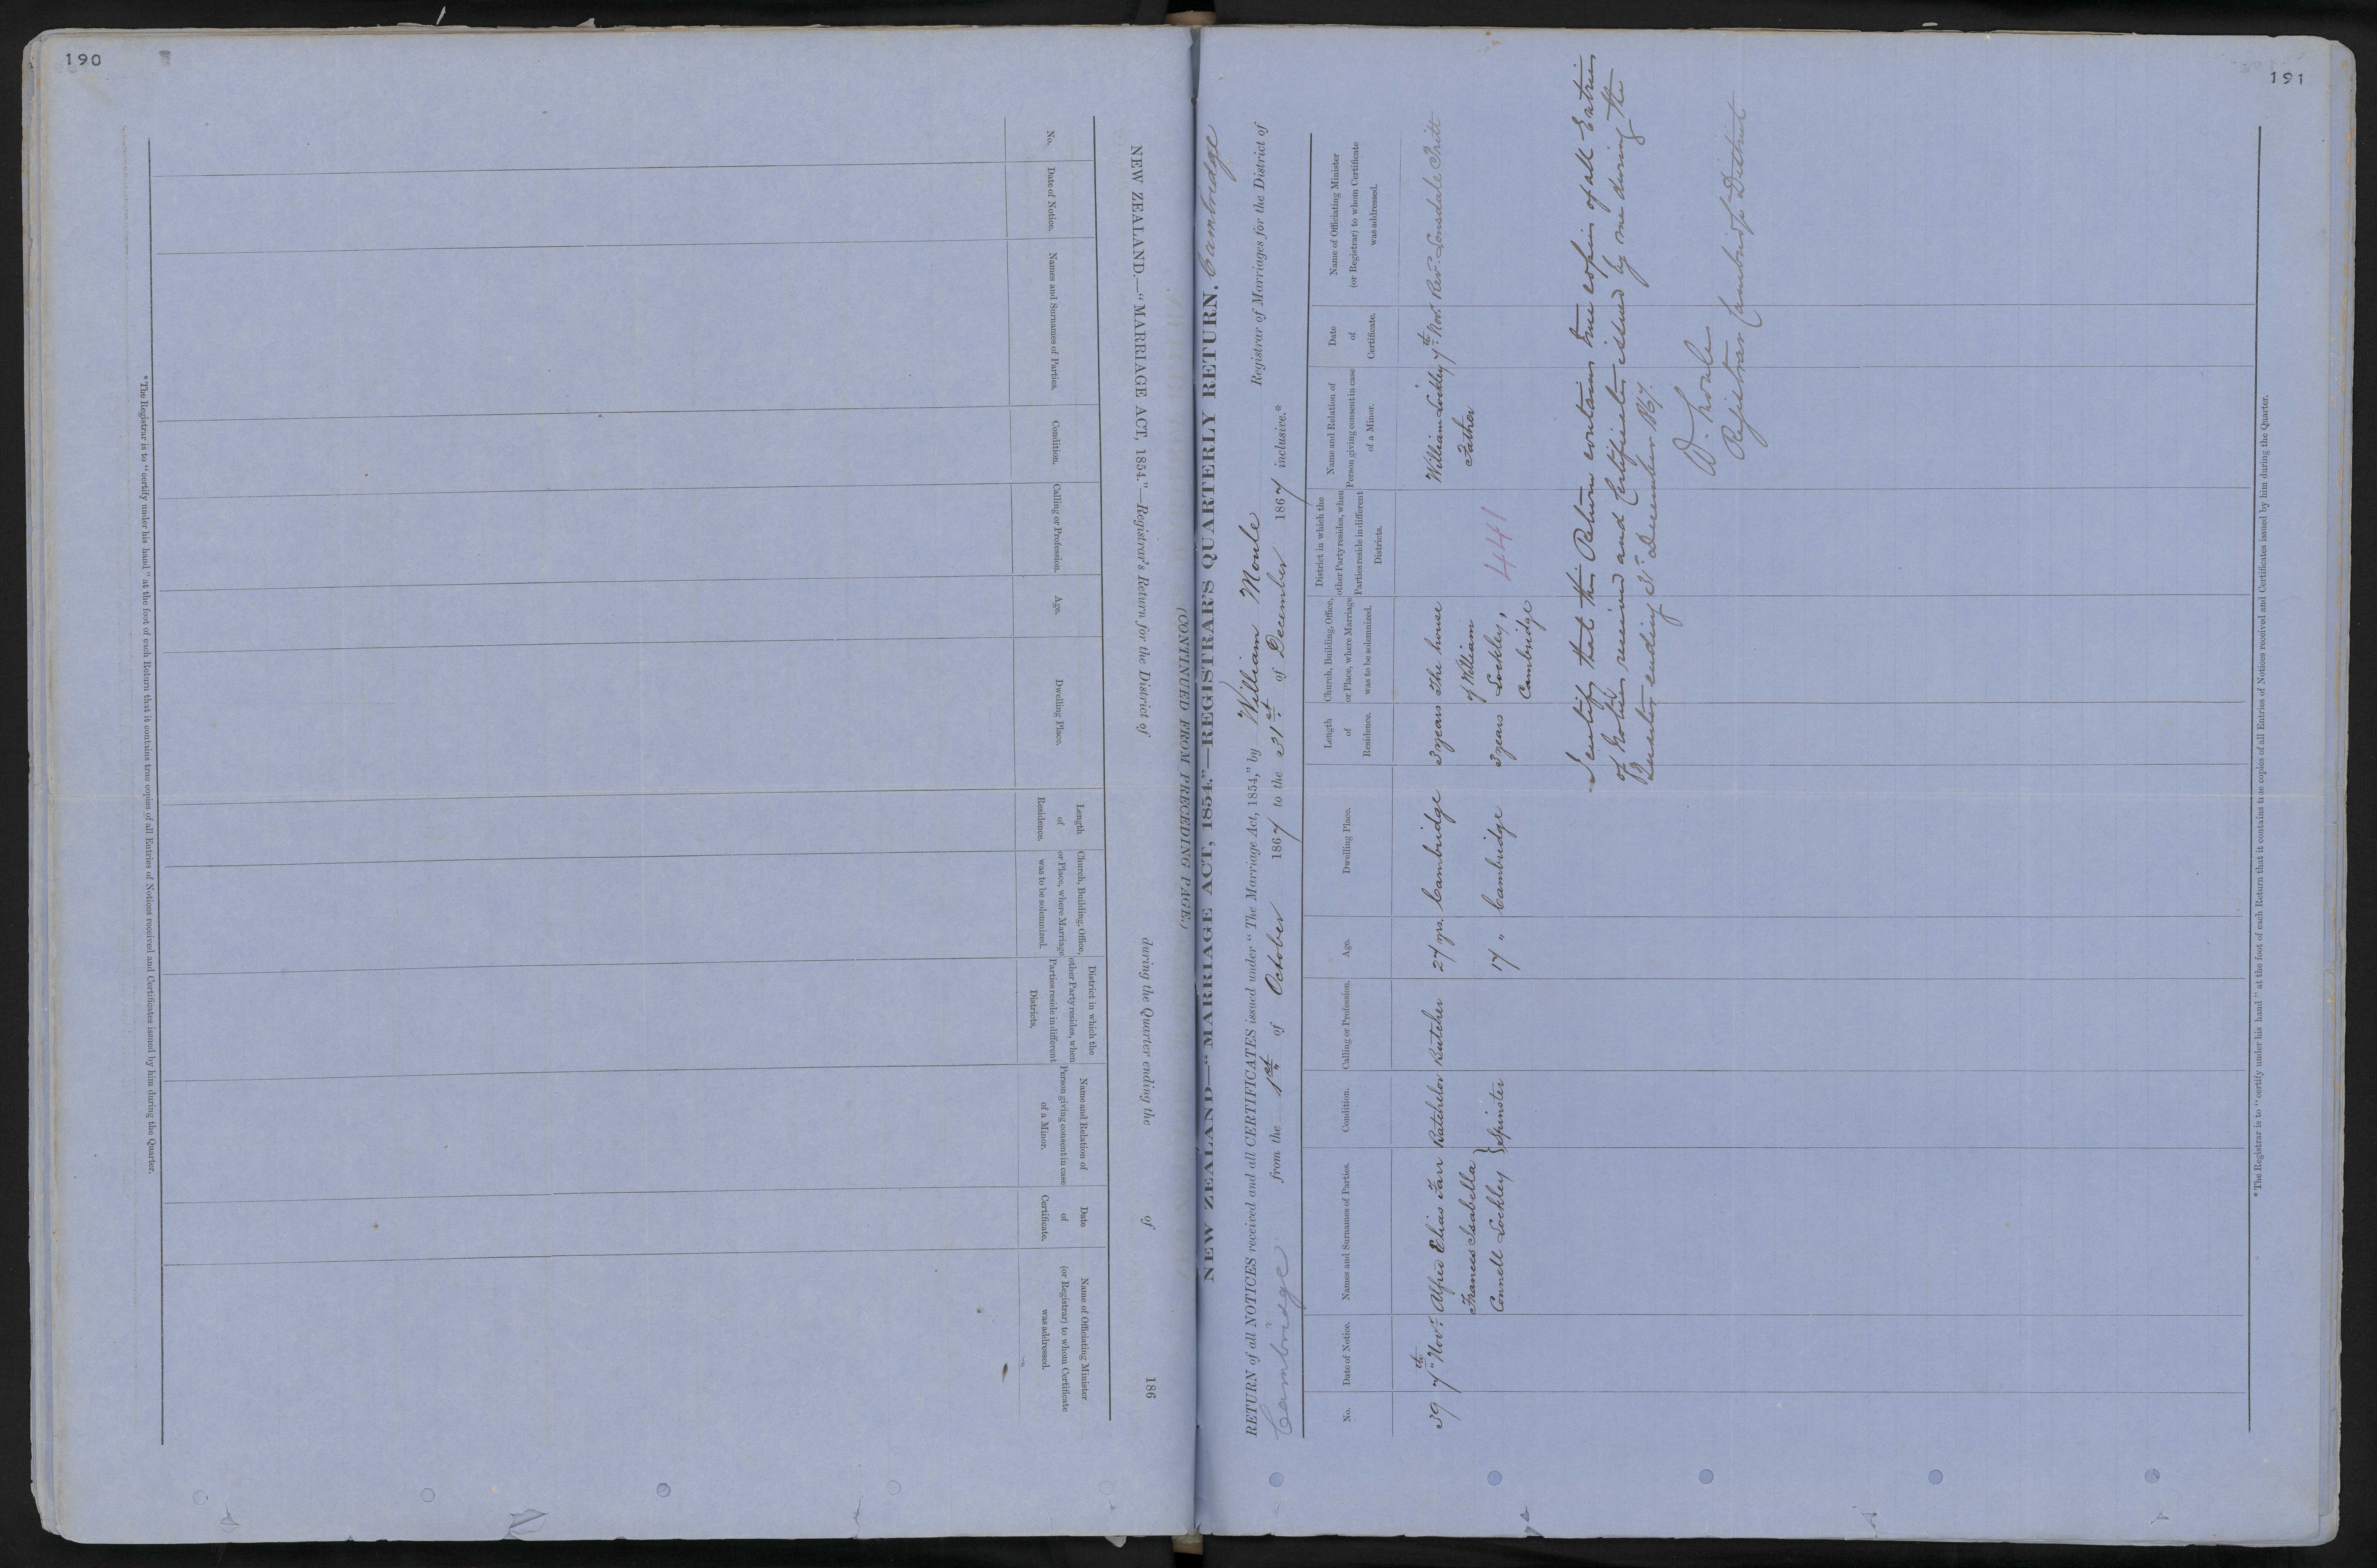 190
NEW ZEALAND.—"MARRIAGE ACT, 1854."—Registrar's Return for the District of during the Quarter ending the of 186
(CONTINUED FROM PRECEDING PAGE.)
No.
Date of Notice.
Names and Surnames of Parties.
Condition.
Calling or Profession.
Age.
Dwelling Place.
Length
of
Residence.
Church, Building, Office,
or Place, where Marriage
was to be solemnized.
District in which the
other Party resides, when
Parties reside in different
Districts.
Name and Relation of
Person giving consent in case
of a Minor.
Date
of
Certificate.
Name of Officiating Minister
(or Registrar) to whom Certificate
was addressed.
* The Registrar is to "certify under his hand" at the foot of each Return that it contains true copies of all Entries of Notices received and Certificates issued by him during the Quarter.
191
NEW ZEALAND—"MARRIAGE ACT, 1854."—REGISTRAR'S QUARTERLY RETURN. Cambridge
RETURN of all NOTICES received and all CERTIFICATES issued under "The Marriage Act, 1854," by William Moule Registrar of Marriages for the District of
Cambridge from the 1st of October 1867 to the 31st of December 1867 inclusive.*
No.
Date of Notice.
Names and Surnames of Parties.
Condition.
Calling or Profession.
Age.
Dwelling Place.
Length
of
Residence.
Church, Building, Office,
or Place, where Marriage
was to be solemnized.
District in which the
other Party resides, when
Parties reside in different
Districts.
Name and Relation of
Person giving consent in case
of a Minor.
Date
of
Certificate.
Name of Officiating Minister
(or Registrar) to whom Certificate
was addressed.
39 7th Nov. Alfred Elias Farr Batchelor Butcher 27 yrs. Cambridge 3 years The house William Lockley 7th Nov. Rev. Lonsdale Pritt
Frances Isabella } of William Father
Connell Lockley Spinster 17 " Cambridge 3 years Lockley, 441
Cambridge
I certify that this Return contains true copies of all Entries
of Notices received and Certificates issued by me during the
Quarter ending 31st December 1867.
W. Moule
Registrar Cambridge District
* The Registrar is to "certify under his hand" at the foot of each Return that it contains true copies of all Entries of Notices received and Certificates issued by him during the Quarter.